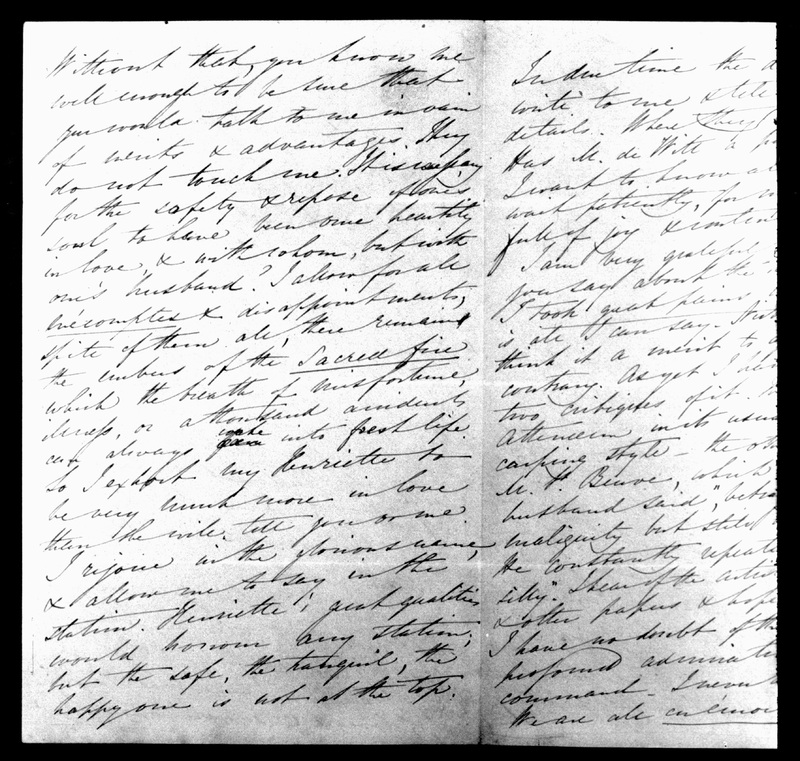 Without that, you know me
well enough to be sure that
you would talk to me in vain
of merits & advantages. They
do not touch me. It is
for the safety & repose of one's
soul to have been once heartily
in love, & with whom, but with
one's husband? I allow for all
mécomptes & disappointments;
spite of them all, there remains
the embers of the Sacred fire
which the breath of misfortune,
illness, or a thousand accidents
can always wake into fresh life
So I exhort my Henriette to
be very much more in love
than she will tell you or me.
I rejoice in the glorious name,
& allow me to say in the
station. Henriette's great qualities
would honour any station;
but the safe, the tranquil, the
happy one is not at the top.
In due time the
write to me & tell
details. Where
Has M. de Witt a
I want to know
wait patiently, for
full of joy &
I am very grateful
you say about the
I took great pains
is all I can say.
think it a merit to
contrary. As yet I
two critiques of it.
Athenæum in its usual
carping style – the other
M. St. Beuve, which
husband said, "
malignity but still
He constantly
silly". I hear of the
& other papers & hope
I have no doubt of the
profound admiration
command – I never
We are all